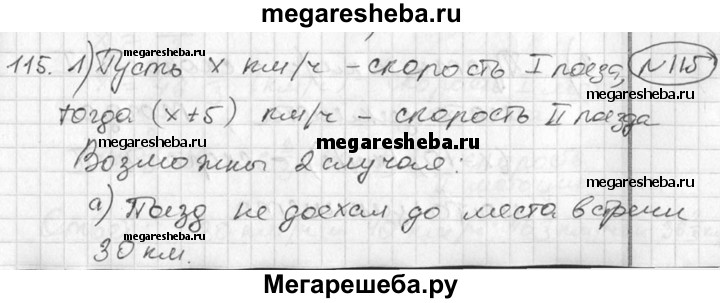 megaresheba.ru
megaresheba.ru
115. 1) Пусть x км/ч - скорость I поезда, №115
тогда (x+5) км/ч - скорость II поезда
megaresheba.ru
megaresheba.ru
Возможны 2 случая:
megaresheba.ru
а) Поезд не доехал до места встречи
30 км.
megaresheba.ru
Мегарешеба.ру